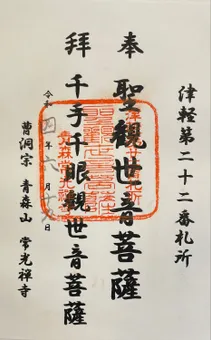 津軽第二十二番札所
奉 聖觀世音菩薩
拜 千手千眼觀世音菩薩
令和四年六月 日
曹洞宗 青森山 常光禅寺